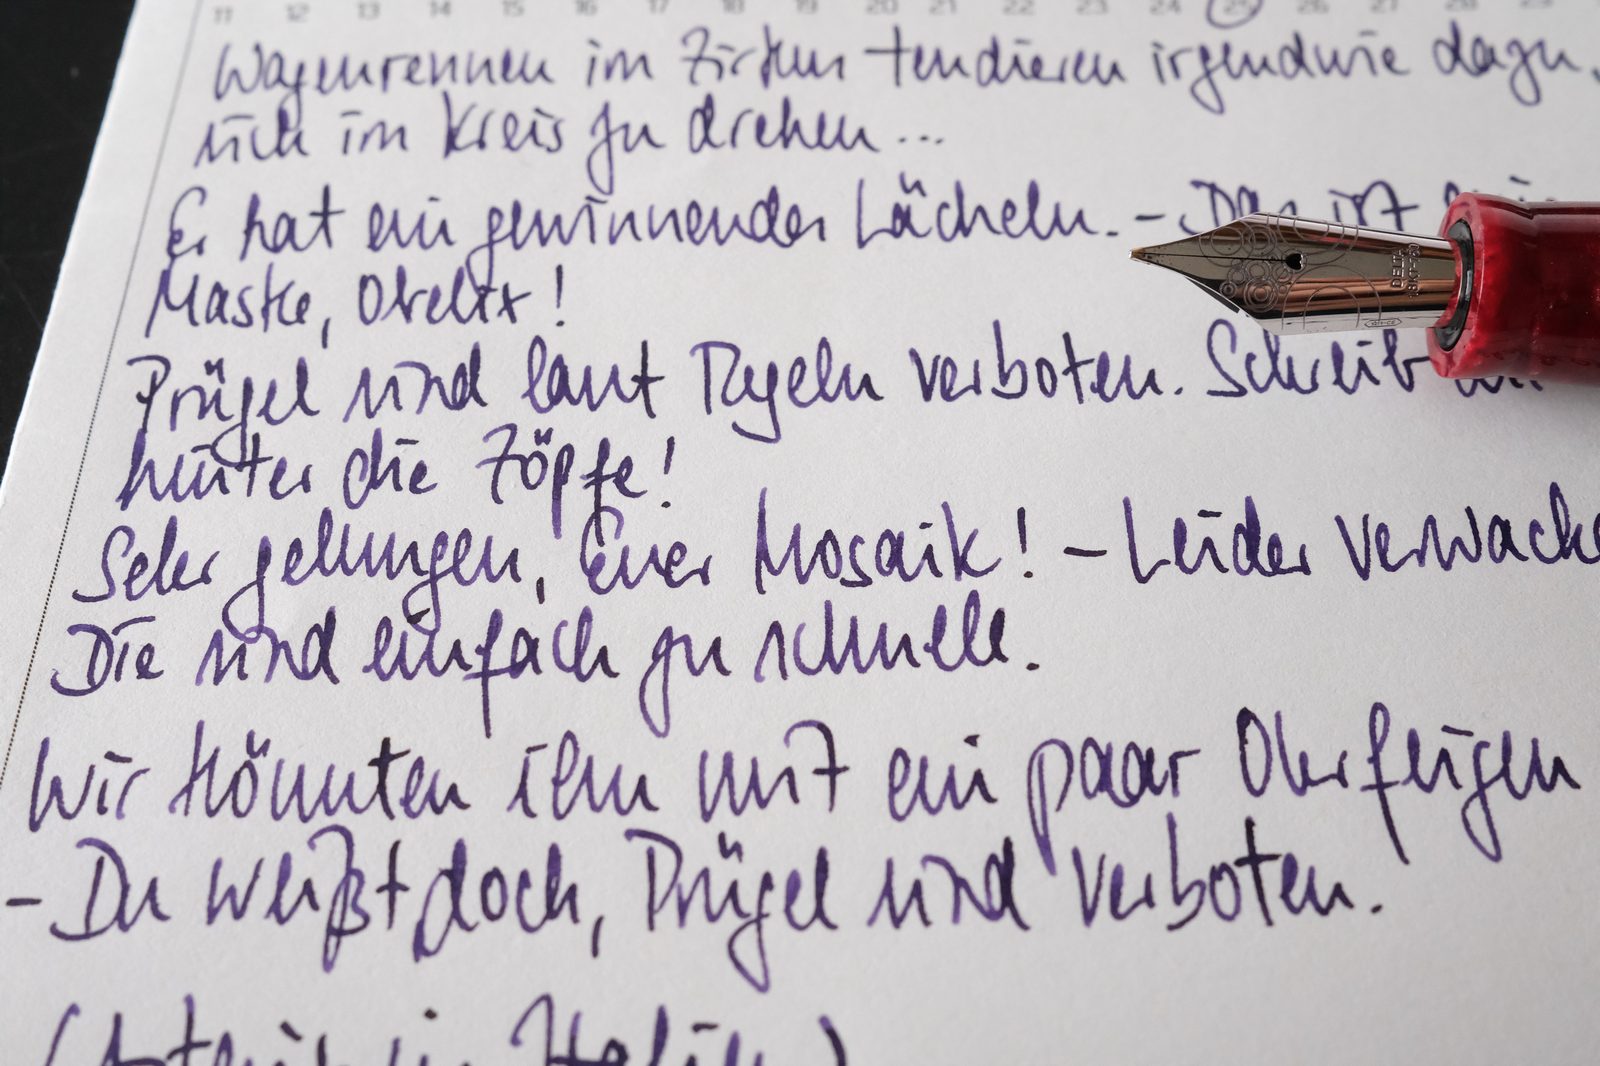 11 12 13 14 15 16 17 18 19 20 21 22 23 24 25 26 27 28 29
Wagenrennen im Zirkus tendieren irgendwie dazu,
sich im Kreis zu drehen...
Er hat ein gewinnendes Lächeln. – Das ist
Maske, Obelix!
Prügel sind laut Regeln verboten. Schreib
hinter die Zöpfe!
Sehr gelungen, Euer Mosaik! – Leider
Die sind einfach zu schnell.
Wir könnten ihm mit ein paar Ohrfeigen
– Du weißt doch, Prügel sind verboten.
(Asterix in Italien)
DELTA